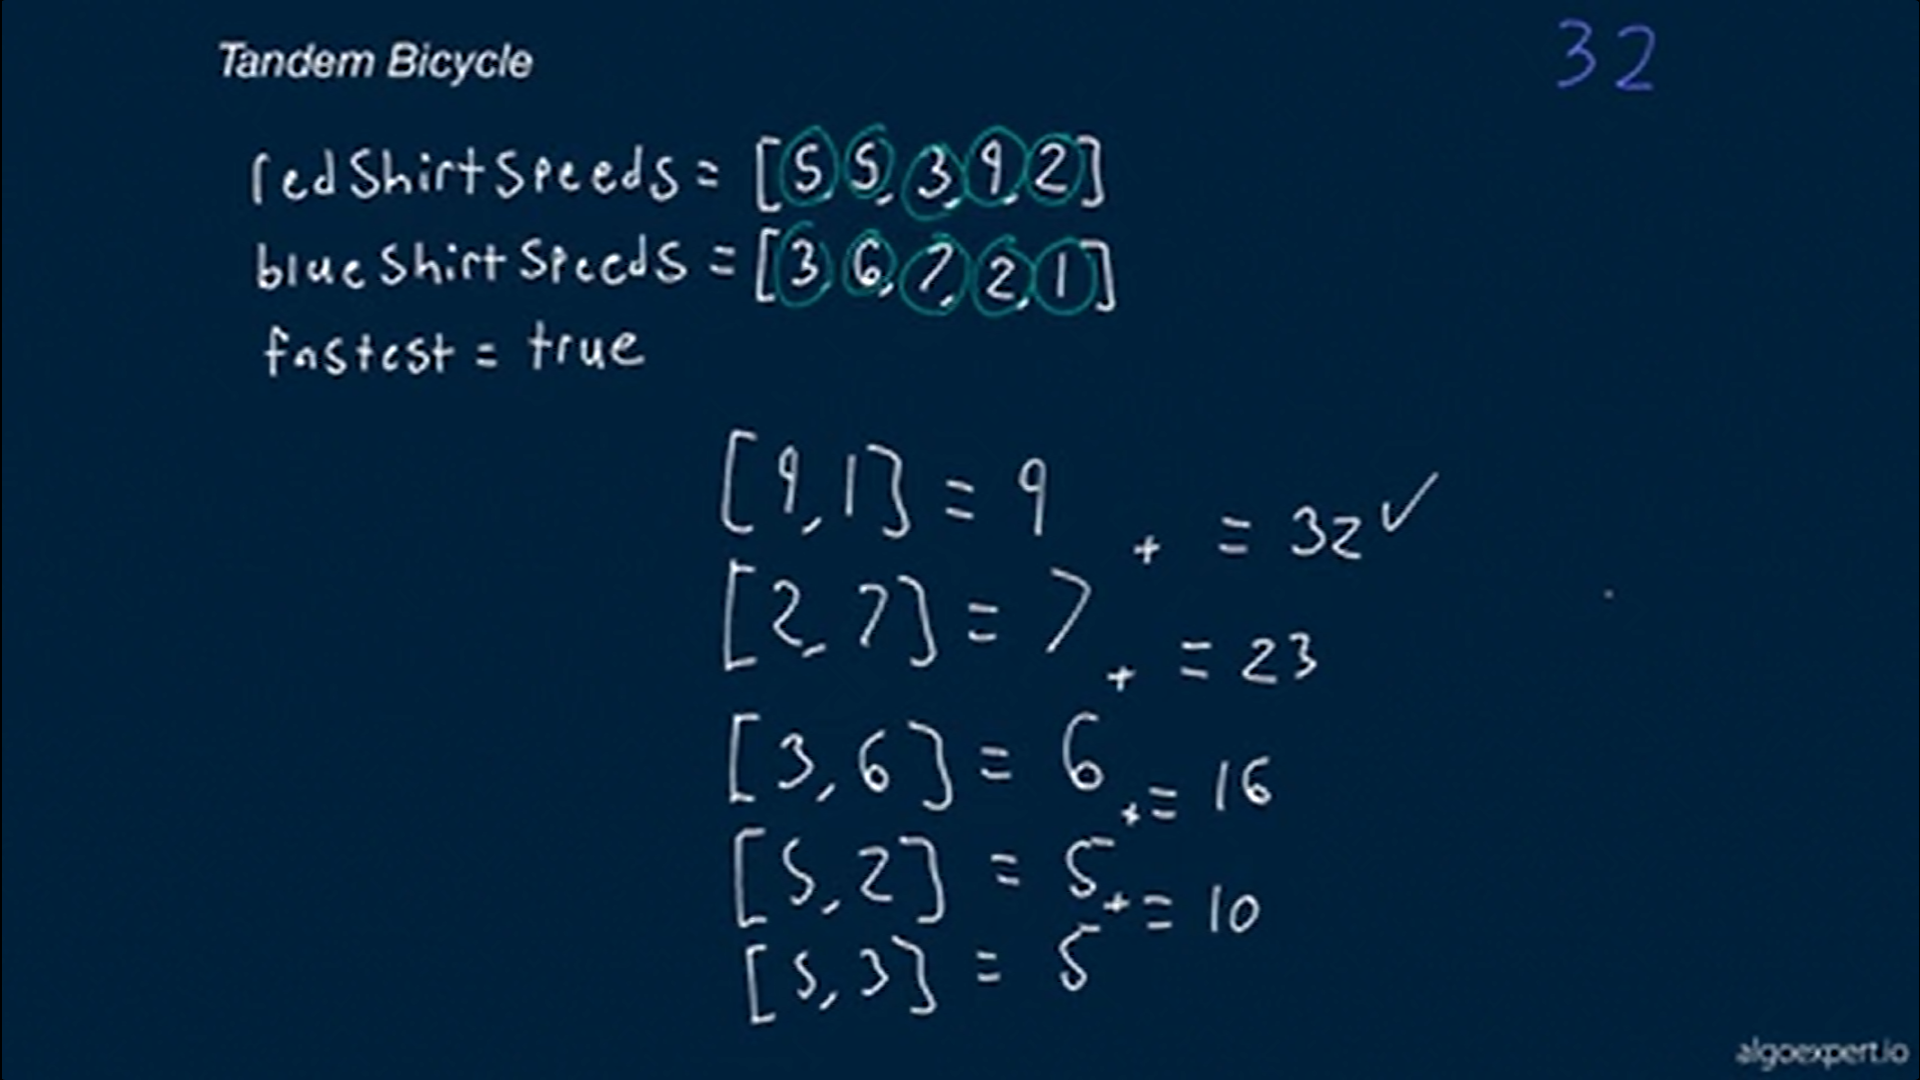 Tandem Bicycle
32
redShirtSpeeds = [5, 5, 3, 9, 2]
blueShirtSpeeds = [3, 6, 7, 2, 1]
fastest = true
[9, 1] = 9
+ = 32 ✓
[2, 7] = 7
+ = 23
[3, 6] = 6
+ = 16
[5, 2] = 5
+ = 10
[5, 3] = 5
algoexpert.io